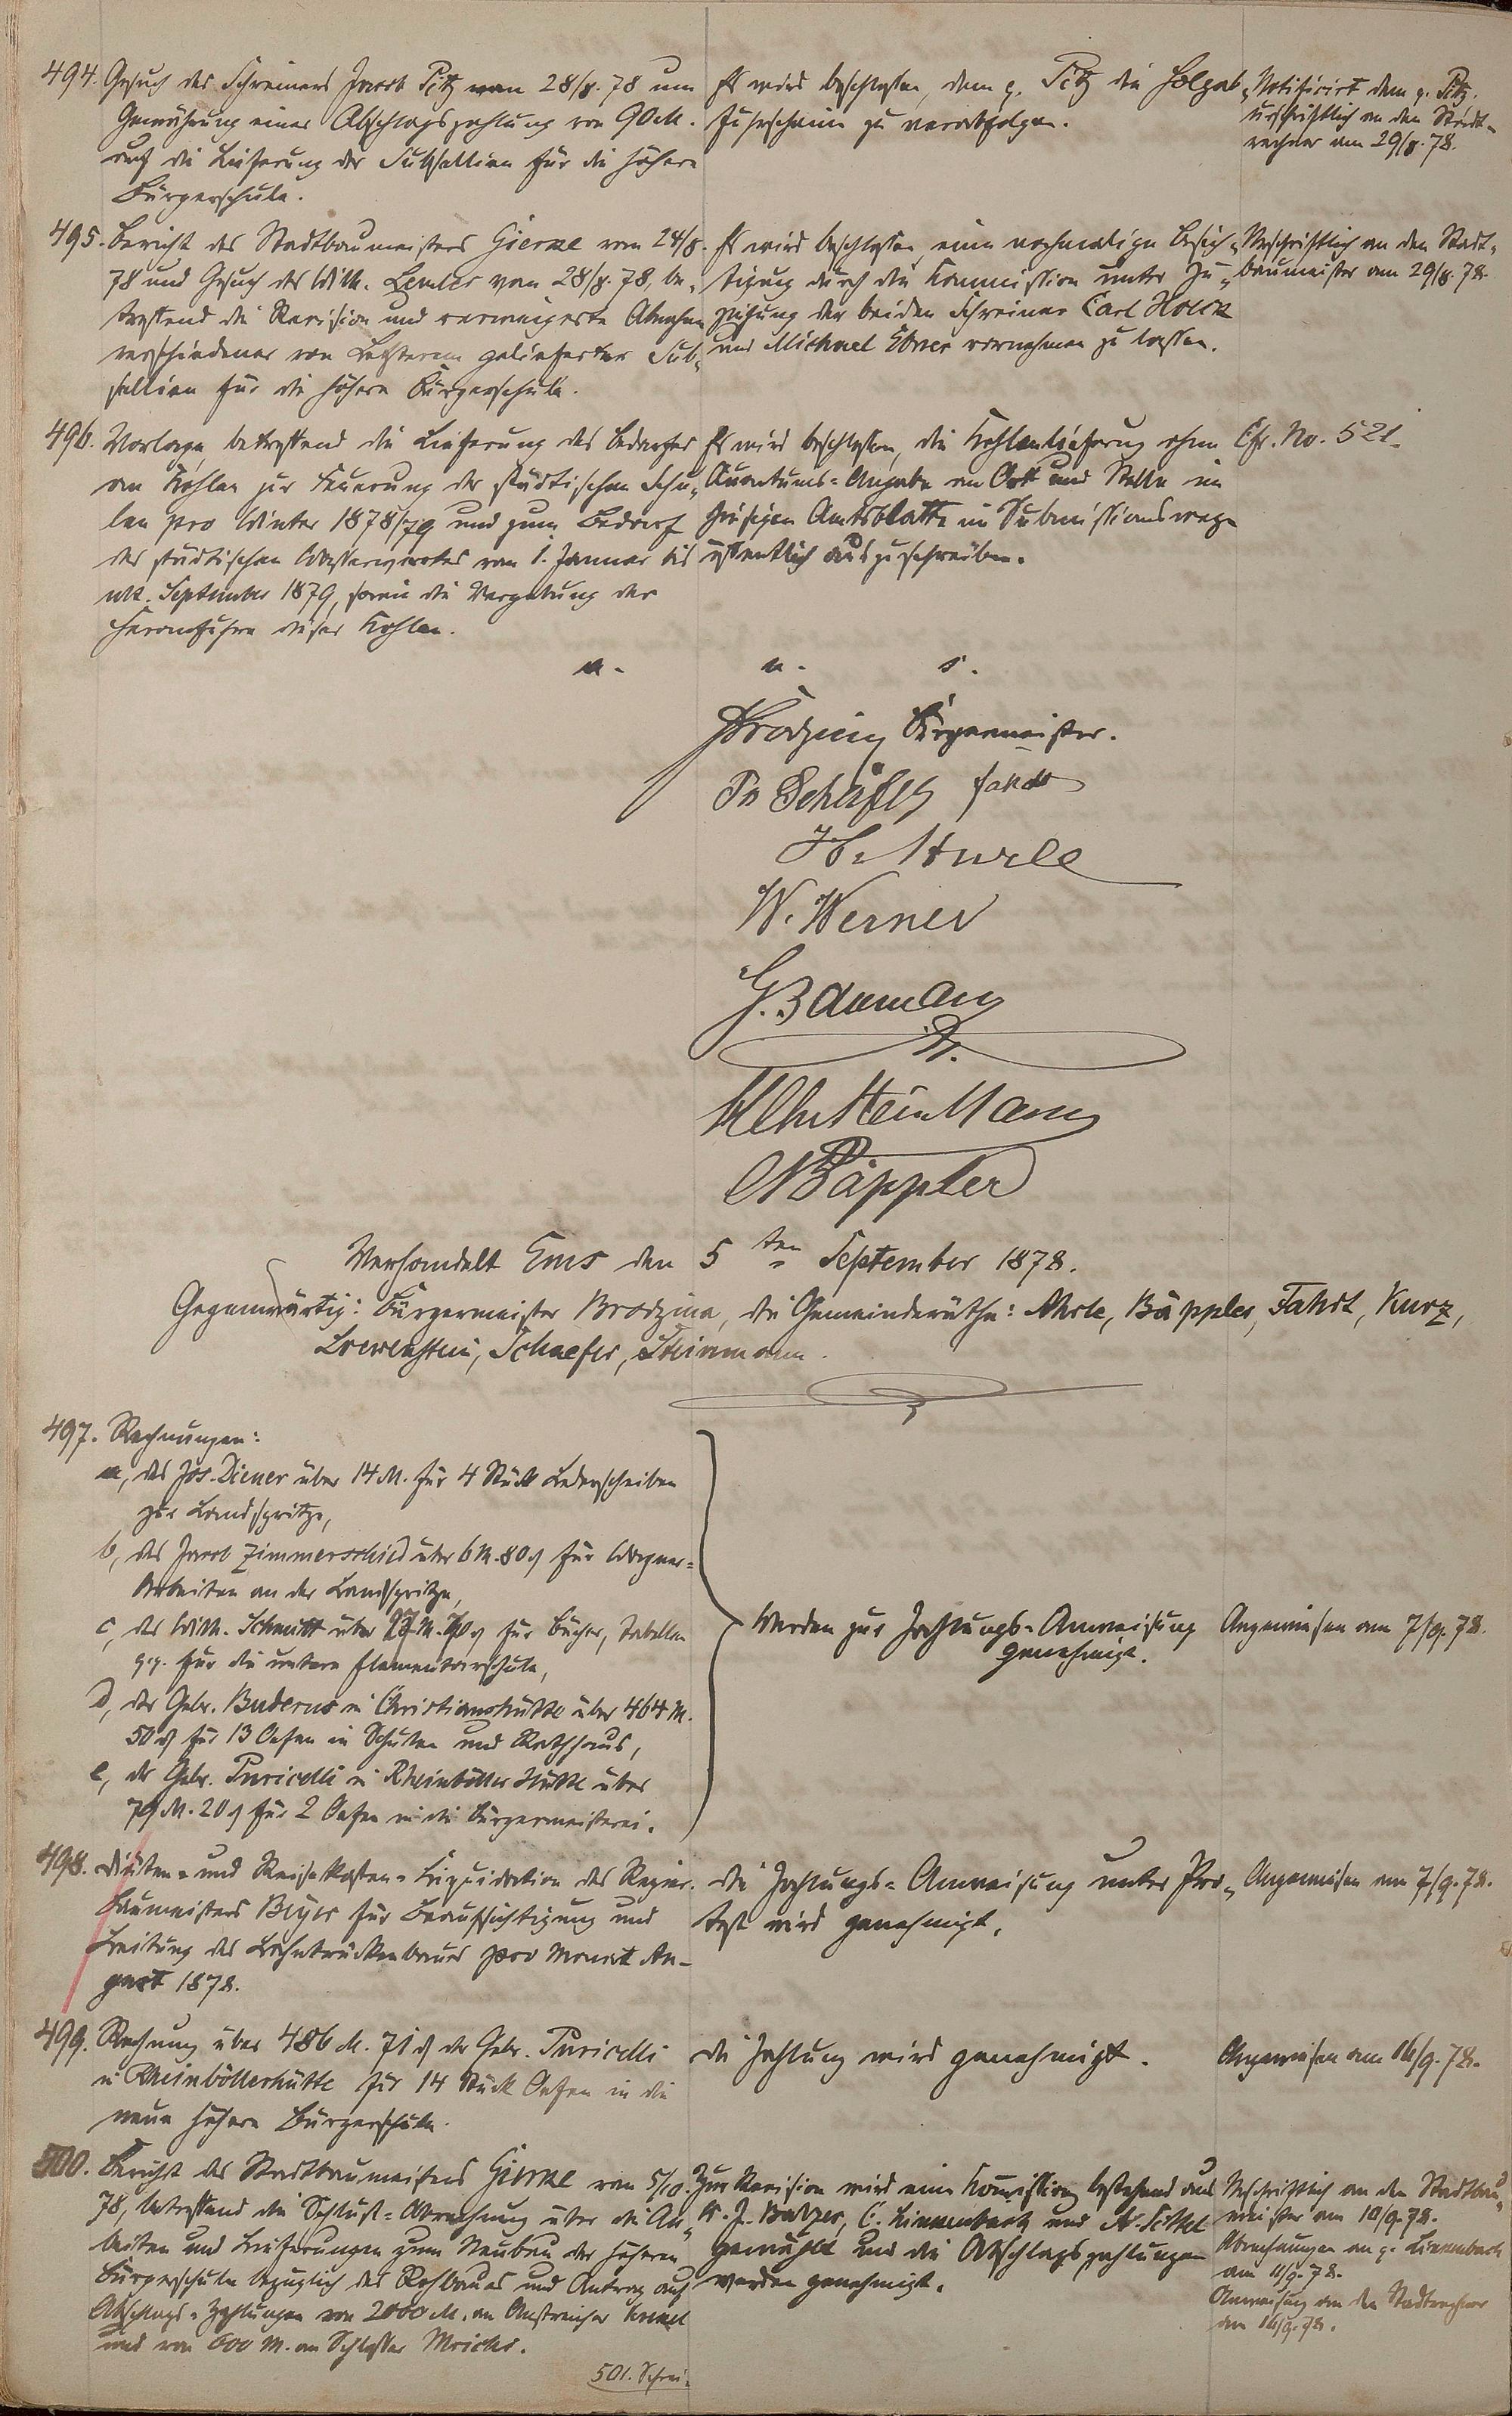 494. Gesuch des Schreiners Jacob Pitz vom 28/8. 78 um
Gewährung einer Abschlagszahlung von 90 M.
auf die Lieferung der Subsellien für die höhere
Bürgerschule.
Es wird beschlossen, dem p. Pitz die
zu verabfolgen.
Notificirt dem p. Pitz.
urschriftlich an den Stadt-
rechner am 29/8. 78.
495. Bericht des Stadtbaumeisters Gierke vom 24/8.
78 und Gesuch des Wilh. Lemler vom 28/8. 78, be-
treffend die Revision und verweigerte Abnahme
verschiedener von Letzterem gelieferter Sub-
sellien für die höhere Bürgerschule.
Es wird beschlossen, eine nochmalige Besich-
tigung durch die Kommission unter Zu-
ziehung der beiden Schreiner Carl
und Michael Ebner vornehmen zu lassen.
Urschriftlich an den Stadt-
baumeister am 29/8. 78.
496. Vorlage, betreffend die Lieferung des Bedarfes
an Kohlen zur Feuerung der städtischen Schu-
len pro Winter 1878/79 und zum Bedarf
des städtischen Wasserwerkes vom 1. Januar bis
ult. September 1879, sowie die Vergebung der
dieser Kohlen.
Es wird beschlossen, die Kohlenlieferung ohne
Quantums-Angabe an Ort und Stelle im
hiesigen Amtsblatte im Submissionswege
öffentlich auszuschreiben.
Cfr. No. 521.
a. u. s.
Brodzina Bürgermeister.
Schäfer Fahdt
W. Werner
G. Bauman
Steinmann
Bäppler
Verhandelt Ems den 5ten September 1878.
Gegenwärtig: Bürgermeister Brodzina, die Gemeinderäthe: Ahrle, Bäppler, Fahdt, Kurz,
Loewenstein, Schaefer, Steinmann.
497. Rechnungen:
a, des Jos. Diener über 14 M. für 4 Stück Lederscheiben
zur Landspritze,
b, des Jacob Zimmerschied über 6 M. 80 ₰ für Wagner-
Arbeiten an der Landspritze,
c, des Wilh. Schmitt über für Bücher, Tabellen
pp. für die untere Elementarschule,
d, der Gebr. Buderus in Christianshütte über 464 M.
50 ₰ für 13 Oefen in Schulen und Rathhaus,
e, der Gebr. Puricelli in Rheinböller Hütte über
79 M. 20 ₰ für 2 Oefen in die Bürgermeisterei.
Werden zur Zahlungs-Anweisung
genehmigt.
Angewiesen am 7/9. 78.
498. Diäten- und Reisekosten-Liquidation des Regier.
Baumeisters Beyer für Beaufsichtigung und
Leitung des Lahnbrückenbaues pro Monat Au-
gust 1878.
Die Zahlungs-Anweisung unter Pro-
test wird genehmigt.
Angewiesen am 7/9. 78.
499. Rechnung über 486 M. 71 ₰ der Gebr. Puricelli
in Rheinböllerhütte für 14 Stück Oefen in die
neue höhere Bürgerschule.
Die Zahlung wird genehmigt.
Angewiesen am 16/9. 78.
500. Bericht des Stadtbaumeisters Gierke vom
78, betreffend die Schluß-Abrechnung über die Ar-
beiten und Lieferungen zum Neubau der höheren
Bürgerschule bezüglich des Rohbaues und Antrag auf
Abschlags-Zahlungen von 2000 M. an Anstreicher
und von 600 M. an Schlosser
Zur Revision wird eine Komission bestehend aus
Balzer, C. Linnenbach und
gewählt und die Abschlagszahlungen
werden genehmigt.
Urschriftlich an den Stadtbau-
meister am 10/9. 78.
Abrechnungen an p. Linnenbach
am 11/9. 78.
Anweisung an den Stadtrechner
am 16/9. 78.
501. Schrei-